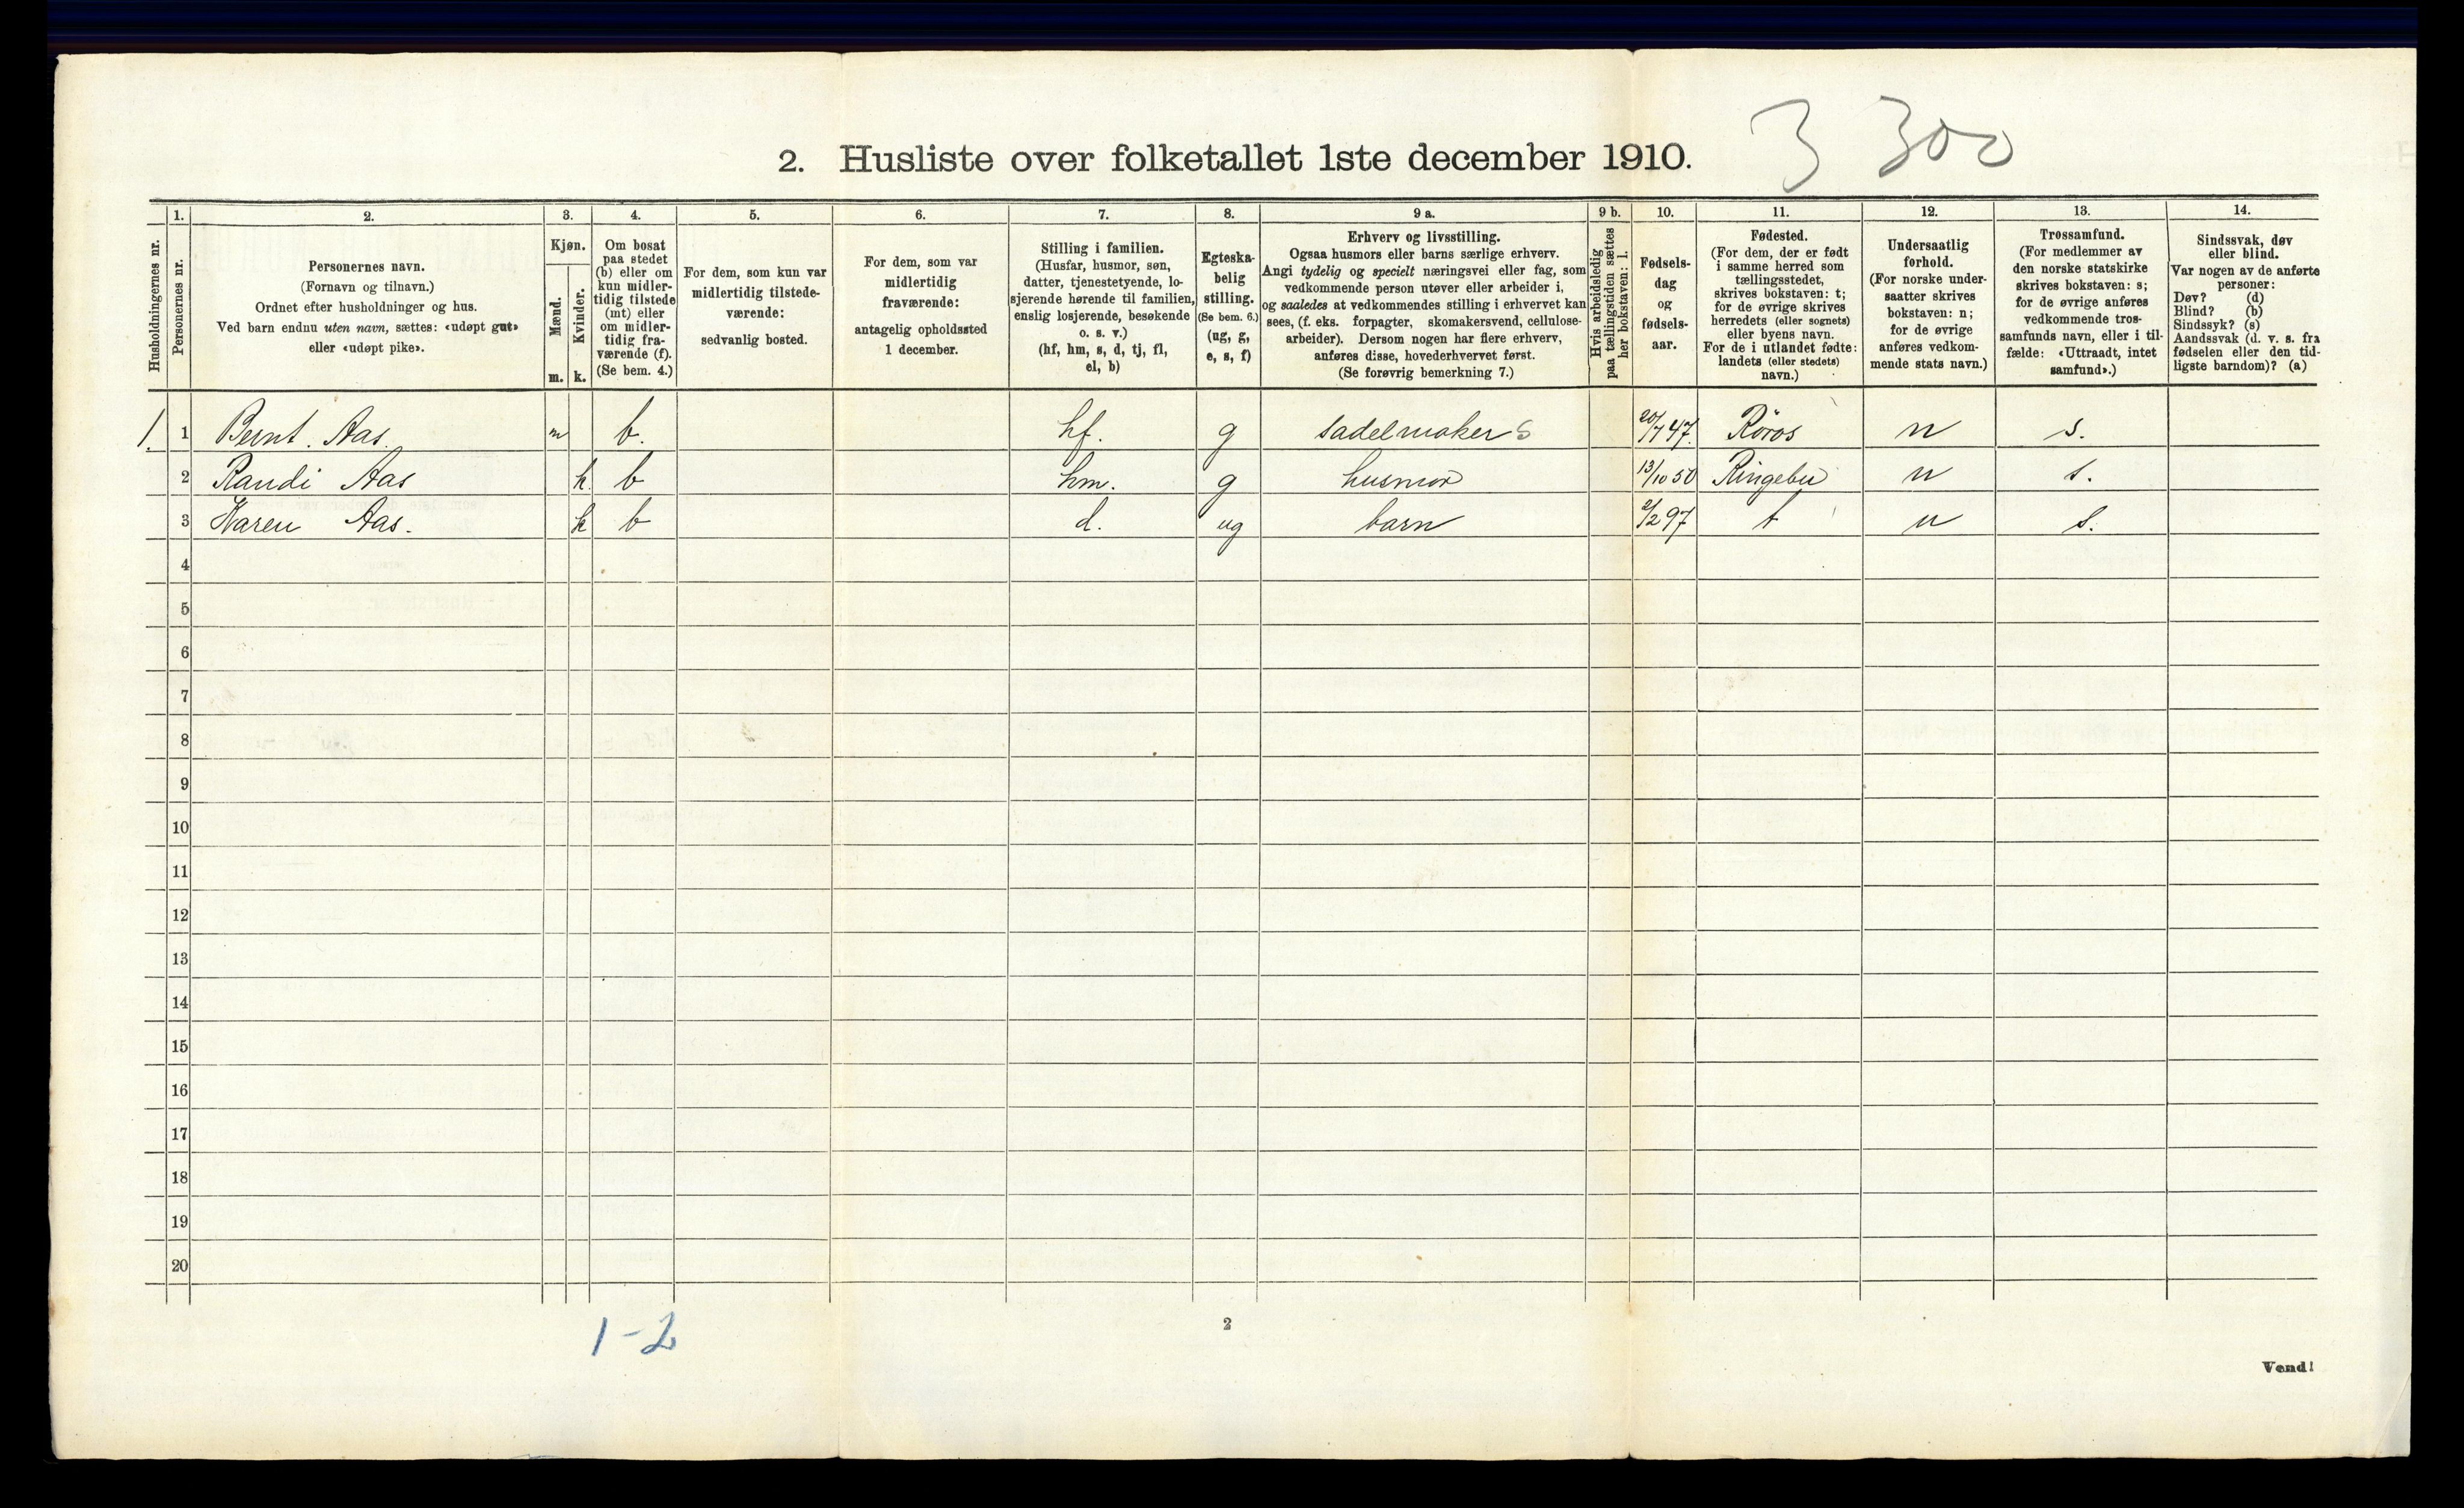 3 300
2. Husliste over folketallet 1ste december 1910.
Husholdningernes nr.
1.
Personernes nr.
2.
Personernes navn.
(Fornavn og tilnavn.)
Ordnet efter husholdninger og hus.
Ved barn endnu uten navn, sættes: «udøpt gut»
eller «udøpt pike».
3.
Kjøn.
Mænd.
m.
Kvinder.
k.
4.
Om bosat
paa stedet
(b) eller om
kun midler-
tidig tilstede
(mt) eller
om midler-
tidig fra-
værende (f).
(Se bem. 4.)
5.
For dem, som kun var
midlertidig tilstede-
værende:
sedvanlig bosted.
6.
For dem, som var
midlertidig
fraværende:
antagelig opholdssted
1 december.
7.
Stilling i familien.
(Husfar, husmor, søn,
datter, tjenestetyende, lo-
sjerende hørende til familien,
enslig losjerende, besøkende
o. s. v.)
(hf, hm, s, d, tj, fl,
el, b)
8.
Egteska-
belig
stilling.
(Se bem. 6.)
(ug, g,
e, s, f)
9 a.
Erhverv og livsstilling.
Ogsaa husmors eller barns særlige erhverv.
Angi tydelig og specielt næringsvei eller fag, som
vedkommende person utøver eller arbeider i,
og saaledes at vedkommendes stilling i erhvervet kan
sees, (f. eks. forpagter, skomakersvend, cellulose-
arbeider). Dersom nogen har flere erhverv,
anføres disse, hovederhvervet først.
(Se forøvrig bemerkning 7.)
9 b.
Hvis arbeidsledig
paa tællingstiden sættes
her bokstaven: l.
10.
Fødsels-
dag
og
fødsels-
aar.
11.
Fødested.
(For dem, der er født
i samme herred som
tællingsstedet,
skrives bokstaven: t;
for de øvrige skrives
herredets (eller sognets)
eller byens navn.
For de i utlandet fødte:
landets (eller stedets)
navn.)
12.
Undersaatlig
forhold.
(For norske under-
saatter skrives
bokstaven: n;
for de øvrige
anføres vedkom-
mende stats navn.)
13.
Trossamfund.
(For medlemmer av
den norske statskirke
skrives bokstaven: s;
for de øvrige anføres
vedkommende tros-
samfunds navn, eller i til-
fælde: «Uttraadt, intet
samfund».)
14.
Sindssvak, døv
eller blind.
Var nogen av de anførte
personer:
Døv? (d)
Blind? (b)
Sindssyk? (s)
Aandssvak (d. v. s. fra
fødselen eller den tid-
ligste barndom)? (a)
1. 1 Bernt. Aas. m b. hf. g sadelmaker S 20/7 47. Röros n s.
2 Randi Aas k. b hm. g husmor 13/10 50 Ringebu n s.
3 Karen Aas. k b d. ug barn 2/2 97 t n s.
4
5
6
7
8
9
10
11
12
13
14
15
16
17
18
19
20
1-2
2
Vend!